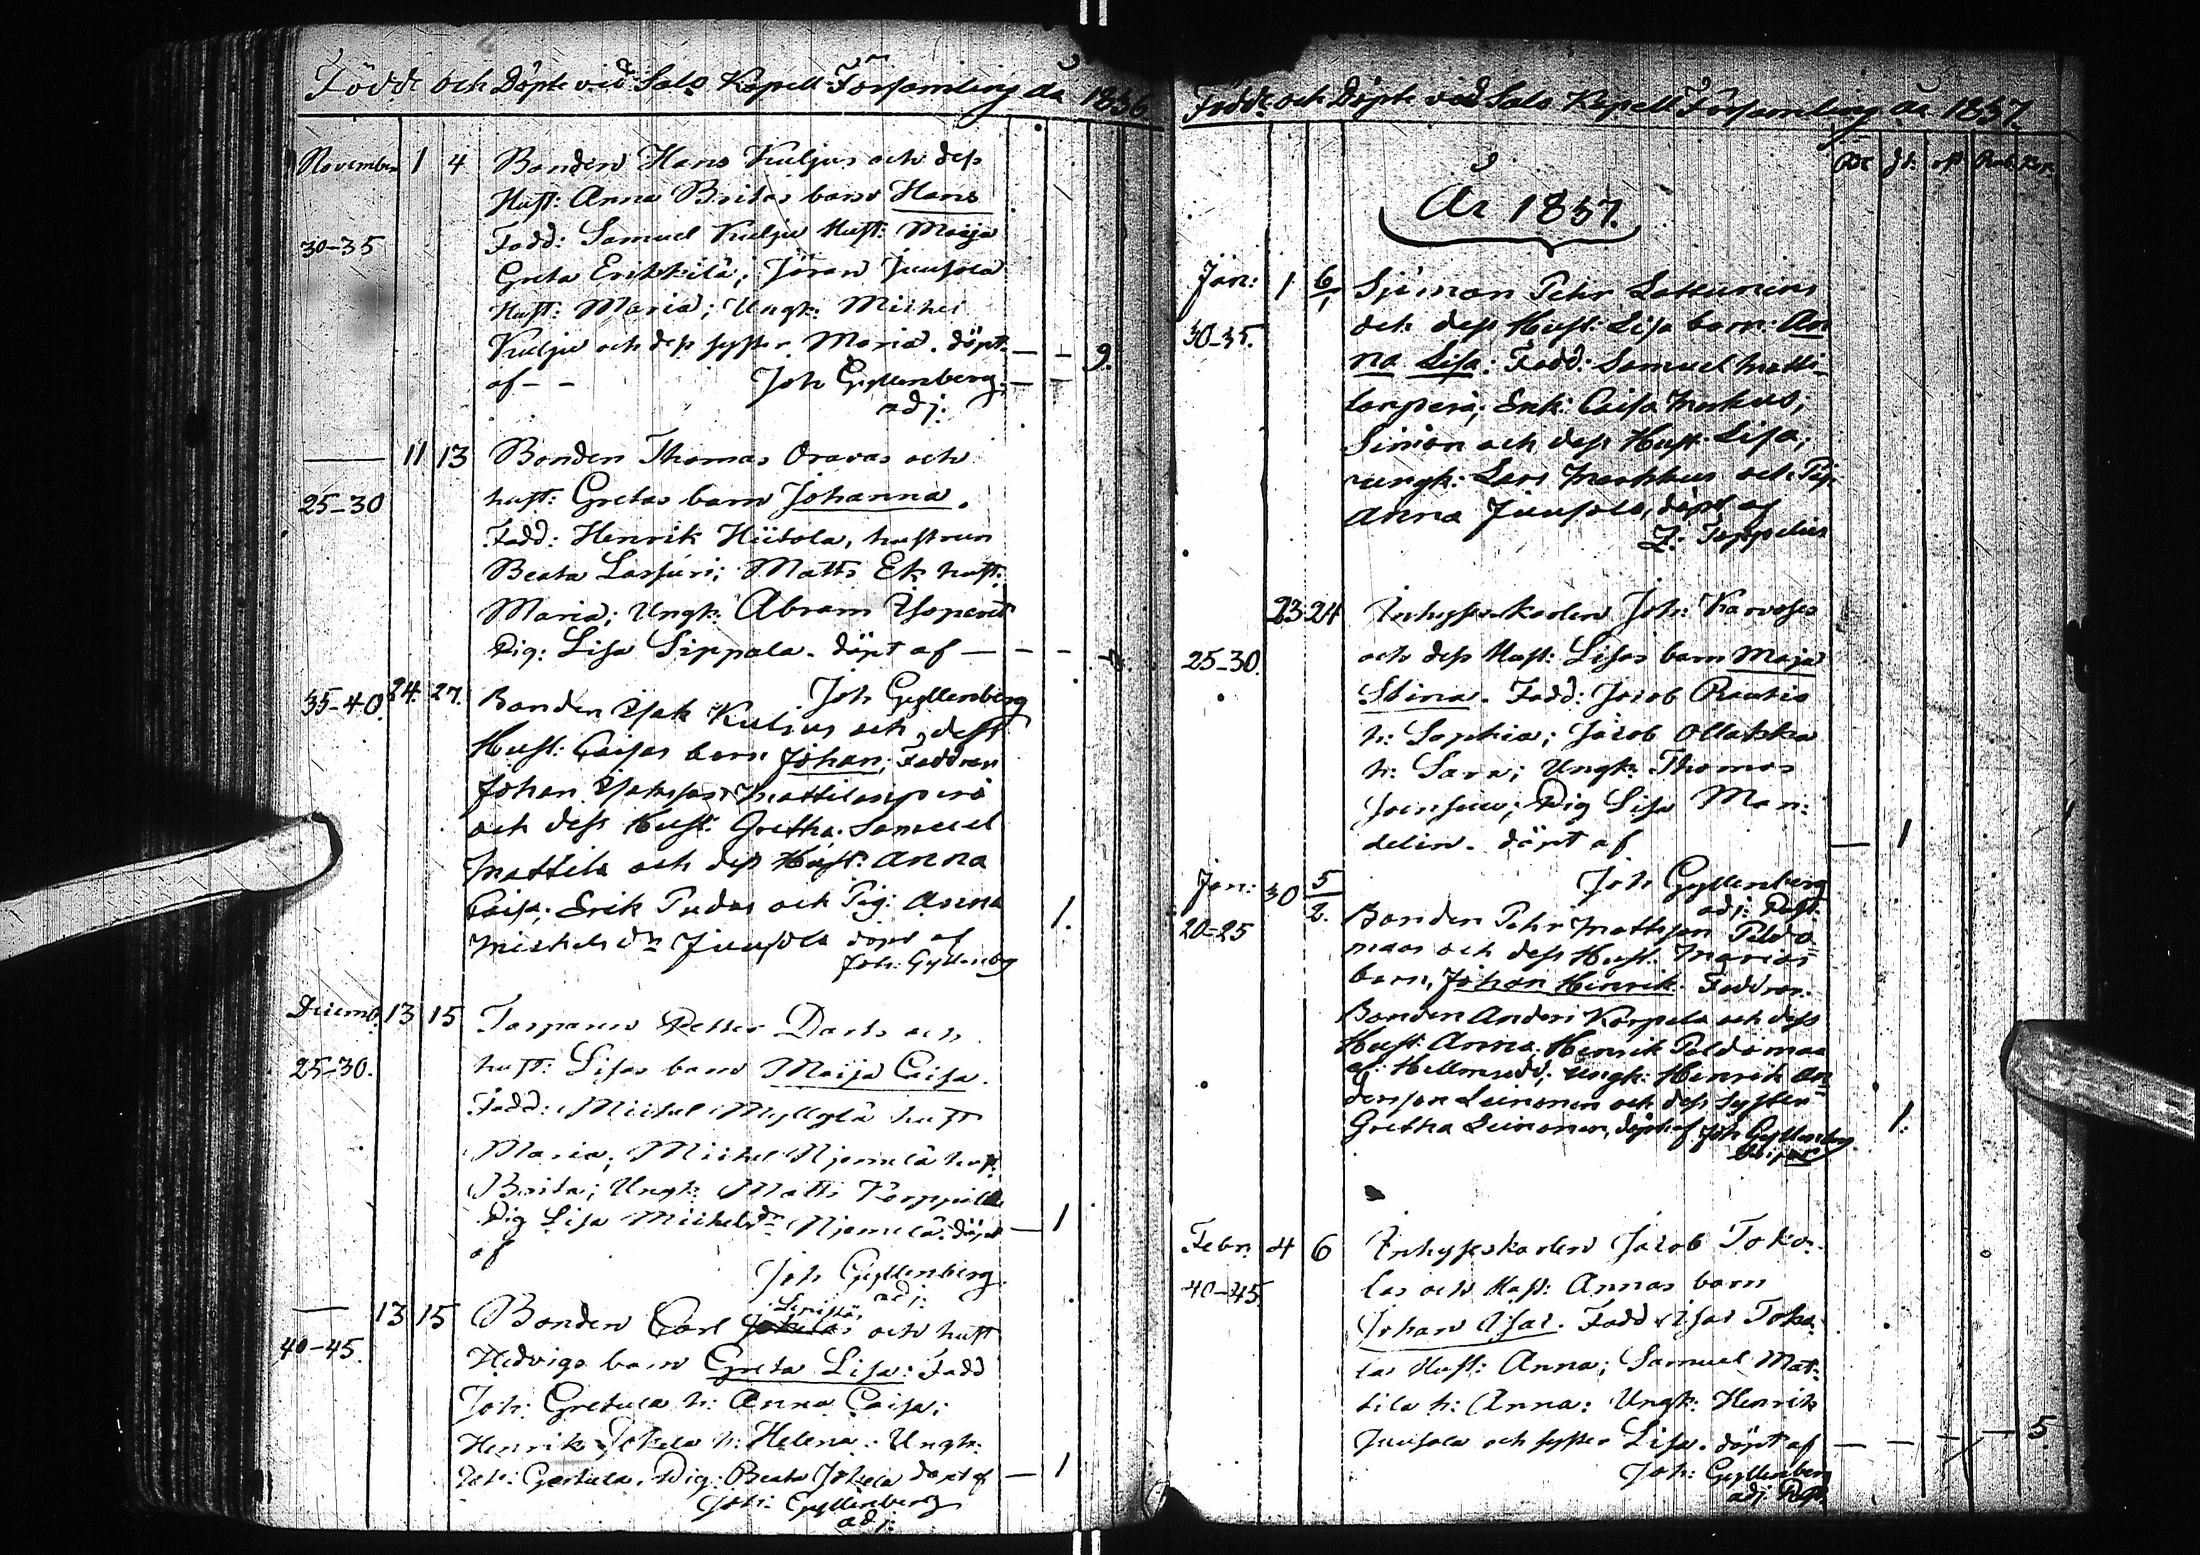 Födde och Döpte vid Salo Kapell Församling åa 1836
November 1 4 Bonden Hans Kuljus och dess
Hust: Anna Britas barn Hans
30-35 Fadd: Samuel Kulju Hust: Maija
Greta Erikkilä; Jöran Juusola
Hust: Maria; Ungk: Michel
Kulju och dess syster Maria. döpt — — 9.
af - - Joh Gyllenberg
adj:
— 11 13 Bonden Thomas Oravas och
25-30 hust: Gretas barn Johanna.
Fadd: Henrik Hiitola, hustrun
Beata Lassuri; Matts Ek hust:
Maria; Ungk: Abram
Pig: Lisa Sippala. döpt af — — —
Joh Gyllenberg
35-40. 24. 27. Bonden Isak Kuljus och dess
Hust: Caisas barn Johan; Faddrar
Johan Mattilanperä
och dess Hust: Gretha. Samuel
Mattila och dess Hust: Anna
Caisa; Erik Pudas och Pig: Anna 1.
Michelsdr Juusola döpt af
Joh: Gyllenberg
Decemb. 13 15 Torparen Petter och
25-30. hust: Lisas barn Maija Caisa.
Fadd: Michel Myllylä hust
Maria; Michel Njemelä hust:
Brita; Ungk: Matts
Pig Lisa Michelsdr Njemelä. döpt — 1
af
Joh Gyllenberg
adj:
— 13 15 Bonden Carl och hust
40-45. Hedvigs barn Greta Lisa: Fadd
Joh: Gretula h: Anna Caisa;
Henrik Jokela h: Helena. Ungk:
Joh: Gretula. Pig: Beata Jokela döpt af — 1
Joh: Gyllenberg
adj:
Födde och Döpte vid Salo Kapell Församling åa 1837.
År 1837.
Jan: 1 6/1 Sjöman Pehr
30-35. och dess Hust: Lisa barn: An
na Lisa: Fadd: Samuel Matti-
lanperä; Enk: Caisa Markus;
Simon och dess Hust: Lisa;
ungk: Lars Markkus och Pig.
Anna Juusola, döpt af
Z: Toppelius
23 24 Inhyseskarlen Joh:
25-30. och dess Hust: Lisas barn Maja
Stina. Fadd: Jacob Rautio
h: Sophia; Jacob Ollakka
h: Sara; Ungk: Thomas
Joensuu; Pig Lisa Man:
delin. döpt af — 1
Joh Gyllenberg
adj: Past:
Jan: 30 5/2. Bonden Pehr Mattsson Paldä
20-25 maas och dess Hust: Marias
barn, Johan Hinrik. Faddrar.
Bonden Anders Korpela och dess
Hust: Anna. Henrik Paldämaa
ungk: Henrik An
dersson Leinonen och dess syster
Gretha Leinonen, döpt af Joh Gyllenberg 1.
Febr. 4 6 Inhyseskarlen Jacob Toko-
40-45. las och Hust: Annas barn
Johan Isac. Fadd Isac Toko-
las Hust: Anna; Samuel Mat-
tila h: Anna: Ungk: Henrik
Juusola och syster Lisa. döpt af — — — — 5.
Joh: Gyllenberg
adj: Past.